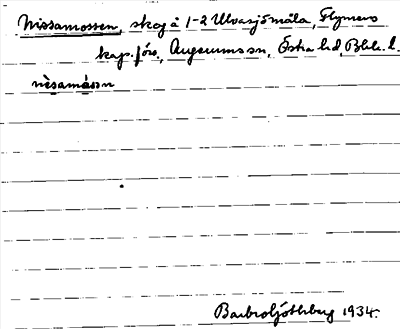 Nissamossen, skog å 1-2 Ulvasjömåla, Flymens
kap.förs., Augerums sn, Östra hd, Blek. l.
nìsamåsn
1934.